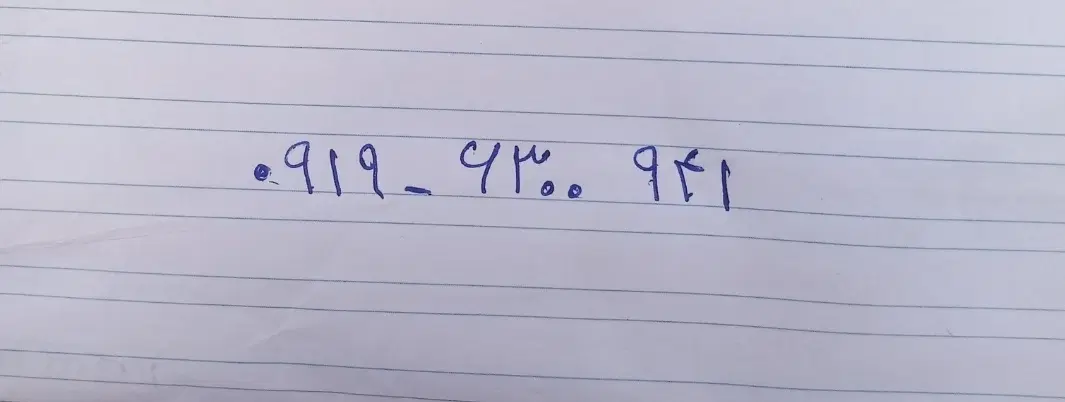 ۰۹۱۹ - ۶۳۰۰ ۹۴۱